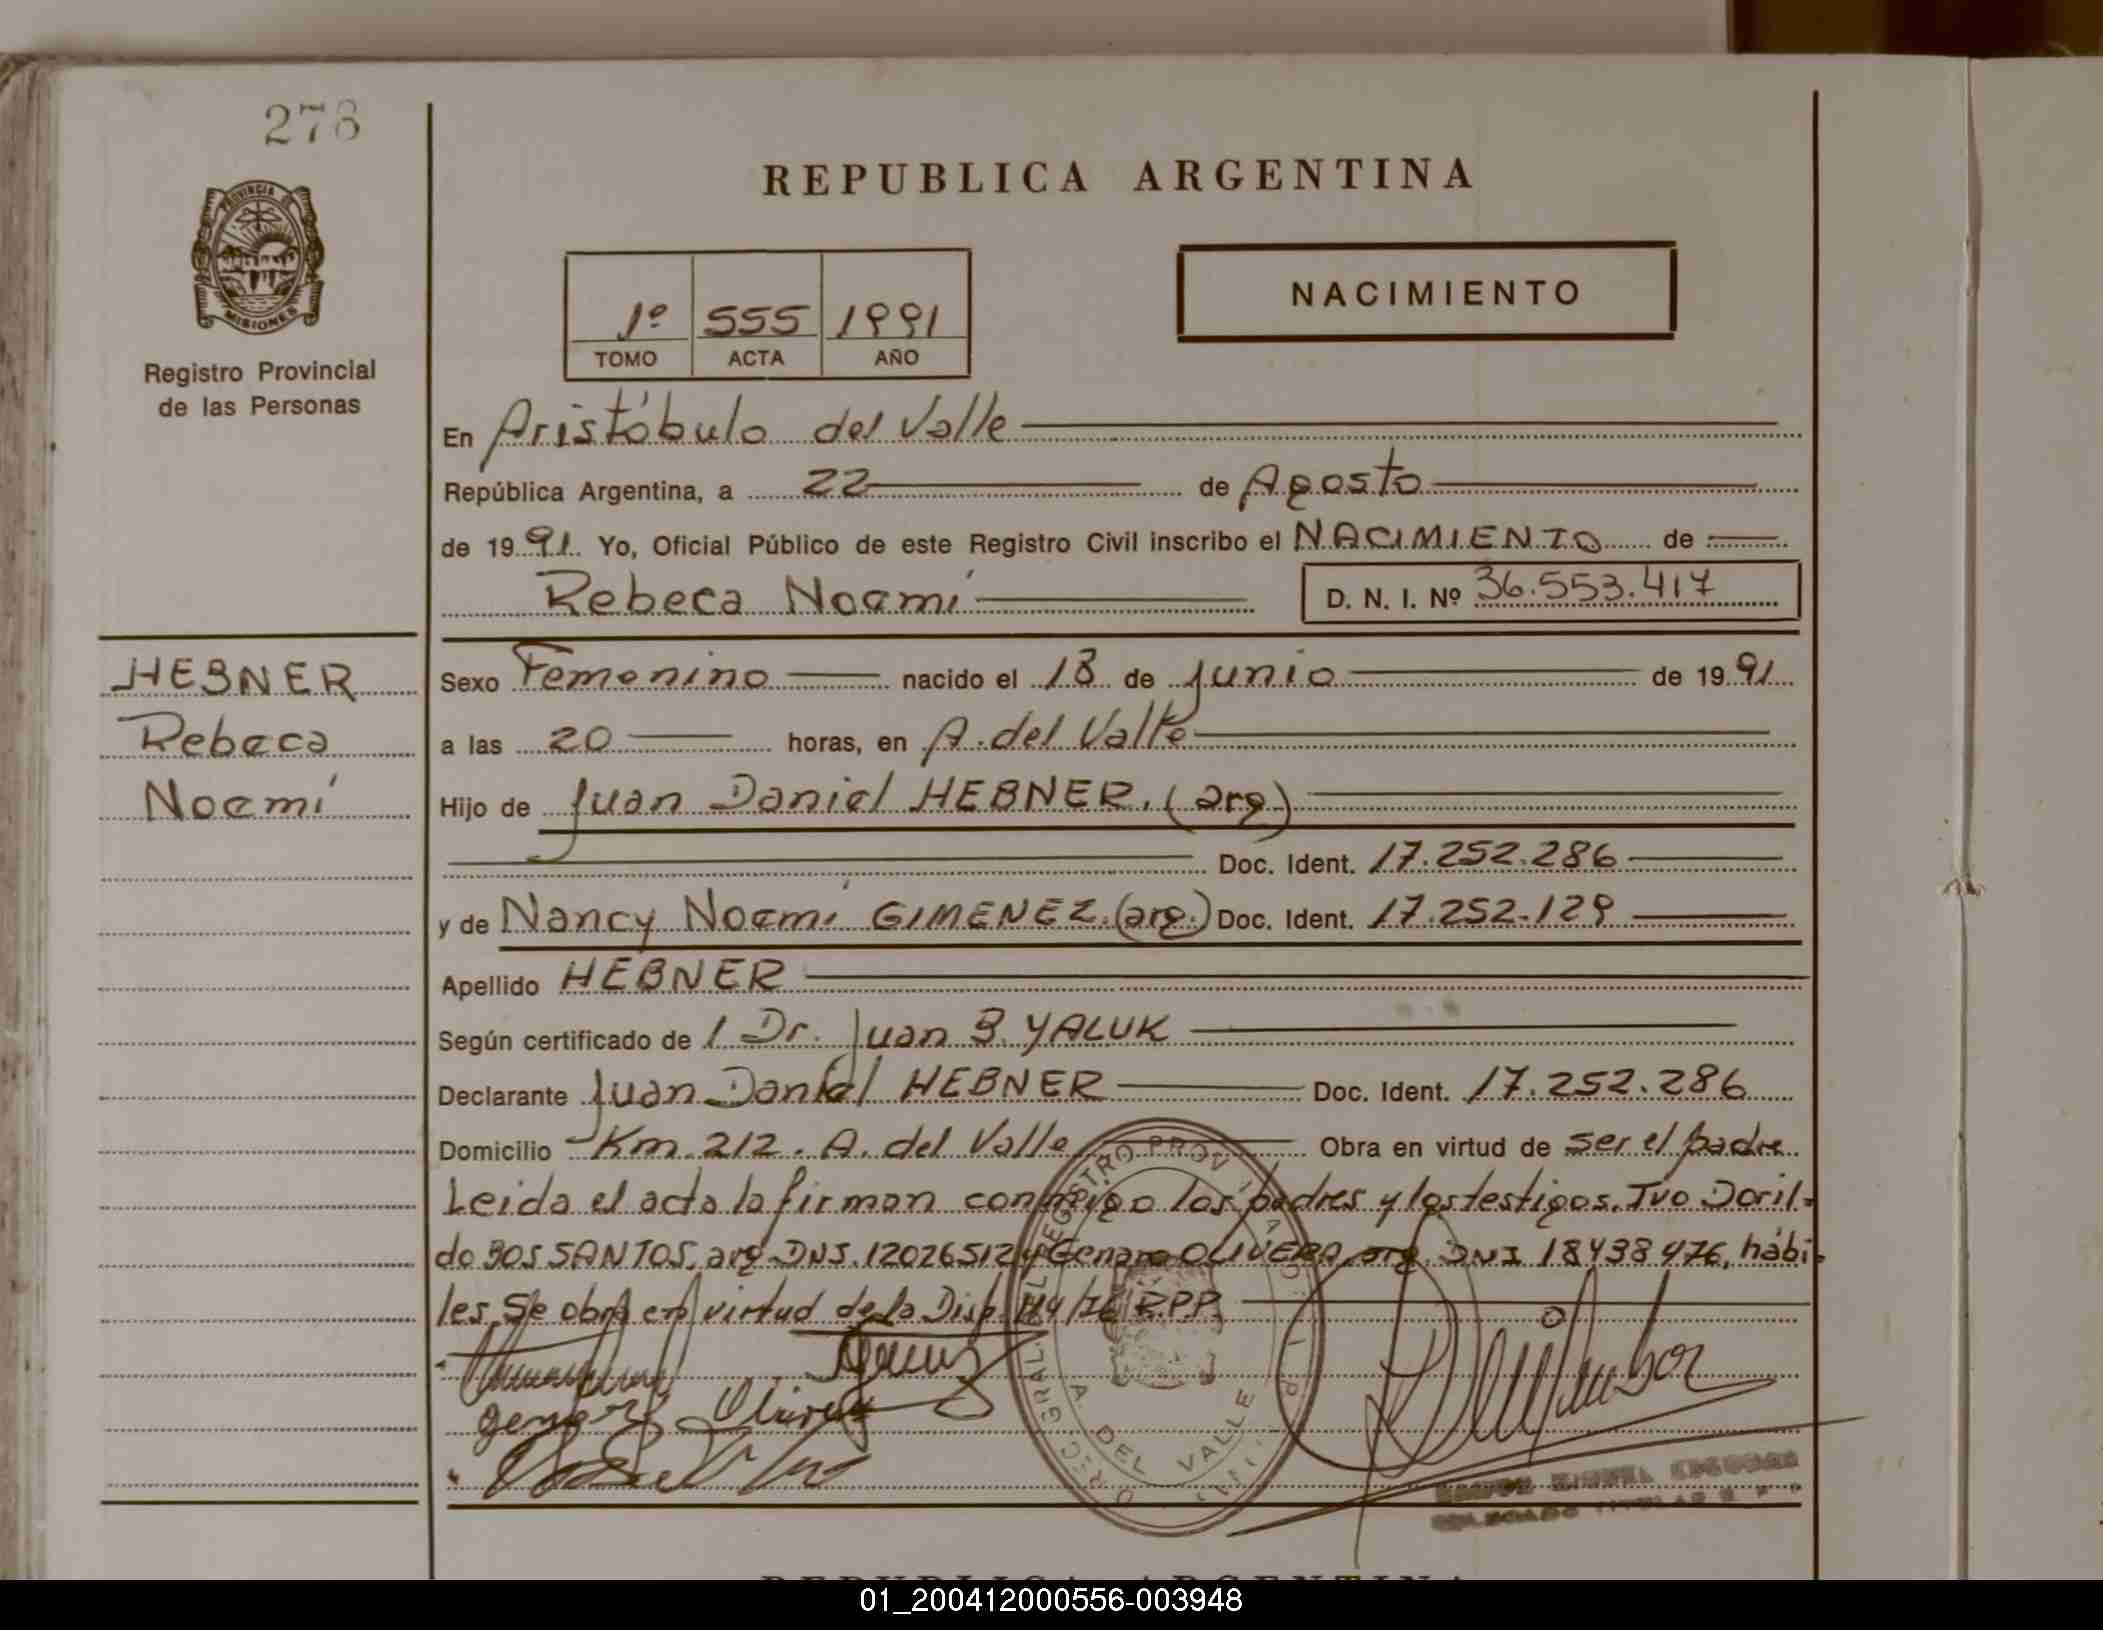 278
REPUBLICA ARGENTINA
PROVINCIA D
MISIONES
Registro Provincial
de las Personas
1º 555 1991
TOMO ACTA AÑO
NACIMIENTO
En Aristóbulo del Valle
República Argentina, a 22 de Agosto
de 1991. Yo, Oficial Público de este Registro Civil inscribo el NACIMIENTO de
Rebeca Noemí D. N. I. Nº 36.553.417
HEBNER
Rebeca
Noemí
Sexo Femenino nacido el 18 de junio de 1991
a las 20 horas, en A. del Valle
Hijo de Juan Daniel HEBNER. (arg.)
Doc. Ident. 17.252.286
y de Nancy Noemí GIMENEZ. (arg.) Doc. Ident. 17.252.129
Apellido HEBNER
Según certificado de / Dr. Juan B. YALUK
Declarante Juan Daniel HEBNER Doc. Ident. 17.252.286
Domicilio Km. 212. A. del Valle Obra en virtud de ser el padre
Leida el acta la firman conmigo los padres y los testigos. Ivo Doril-
do DOS SANTOS, arg. DNI. 12026512 y Genaro OLIVERA, arg. DNI 18438476, hábi-
les. Se obra en virtud de la Disp. R.P.P.
Olivera
A. DEL VALLE
REPUBLICA ARGENTINA
01_200412000556-003948